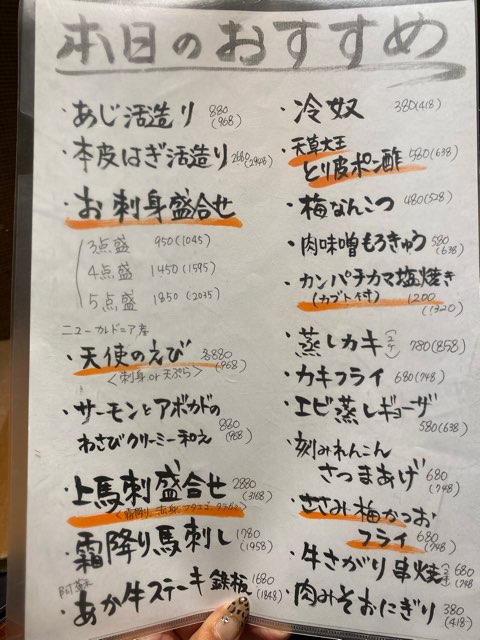 本日のおすすめ
・あじ活造り 880(968)
・本皮はぎ活造り 2680(2948)
・お刺身盛合せ
3点盛 950(1045)
4点盛 1450(1595)
5点盛 1850(2035)
ニューカレドニア産
・天使のえび 880(968)
<刺身 or 天ぷら>
・サーモンとアボカドの
わさびクリーミー和え 880(968)
・上馬刺盛合せ 2880(3168)
・霜降り馬刺し 1780(1958)
阿蘇
・あか牛ステーキ鉄板 1680(1848)
・冷奴 380(418)
・天草大王
とり皮ポン酢 580(638)
・梅なんこつ 480(528)
・肉味噌もろきゅう 580(638)
・カンパチカマ塩焼き
(カブト付) 1200(1320)
・蒸しカキ 780(858)
・カキフライ 680(748)
・エビ蒸しギョーザ
580(638)
・刻みれんこん
さつまあげ 680(748)
・ささみ梅かつお
フライ 680(748)
・牛さがり串焼 680(748
・肉みそおにぎり 380(418)